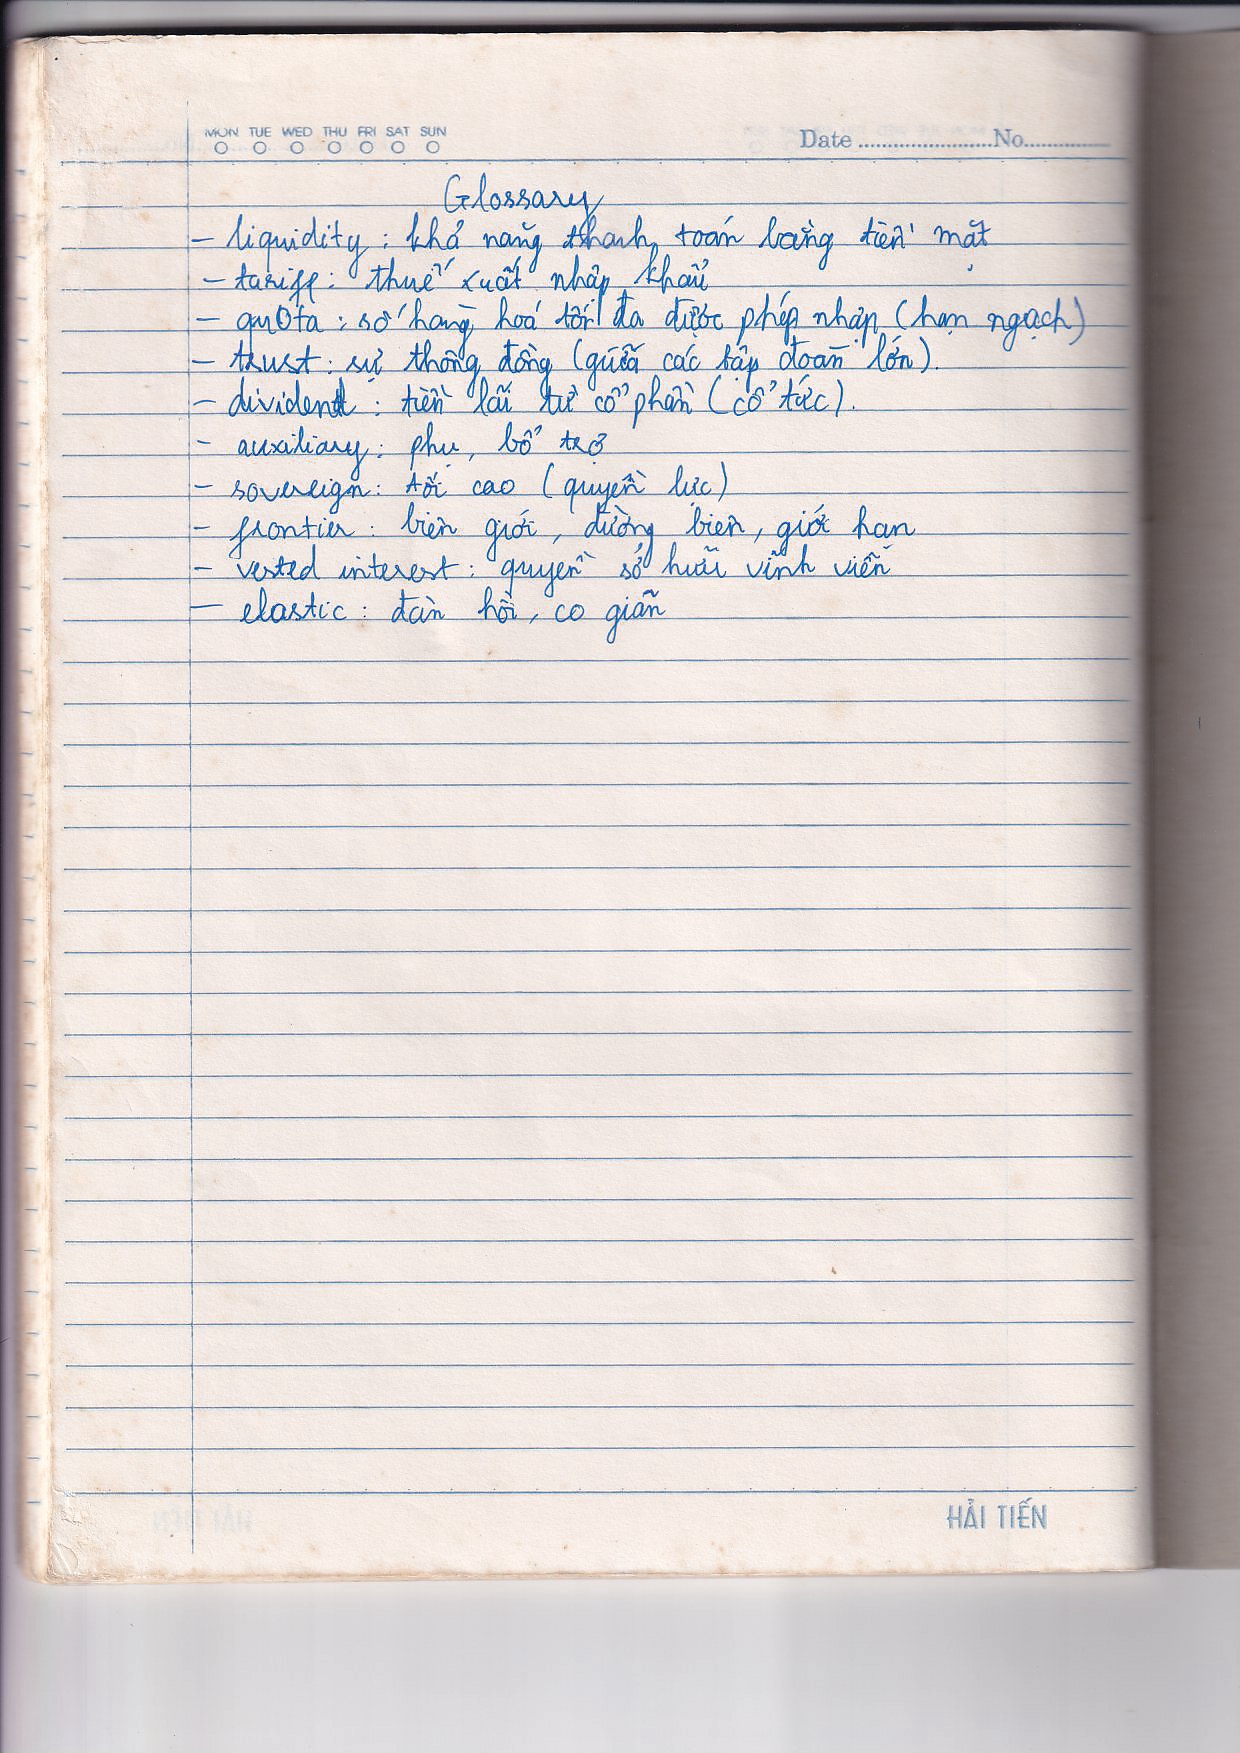 MON TUE WED THU FRI SAT SUN
Date ........................No...............
Glossary
- liquidity : khả năng thanh toán bằng tiền mặt
- tariff : thuế xuất nhập khẩu
- quota : số hàng hoá tối đa được phép nhập (hạn ngạch)
- trust : sự thông đồng (giữa các tập đoàn lớn).
- dividend : tiền lãi từ cổ phần (cổ tức).
- auxiliary : phụ, bổ trợ
- sovereign : tối cao (quyền lực)
- frontier : biên giới, đường biên, giới hạn
- vested interest : quyền sở hữu vĩnh viễn
- elastic : đàn hồi, co giãn
HẢI TIẾN